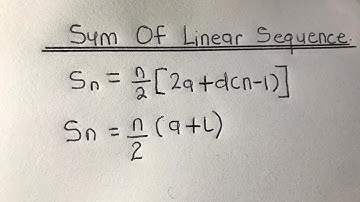 Sum Of Linear Sequence.
Sn = n/2 [2a+d(n-1)]
Sn = n/2 (a+L)